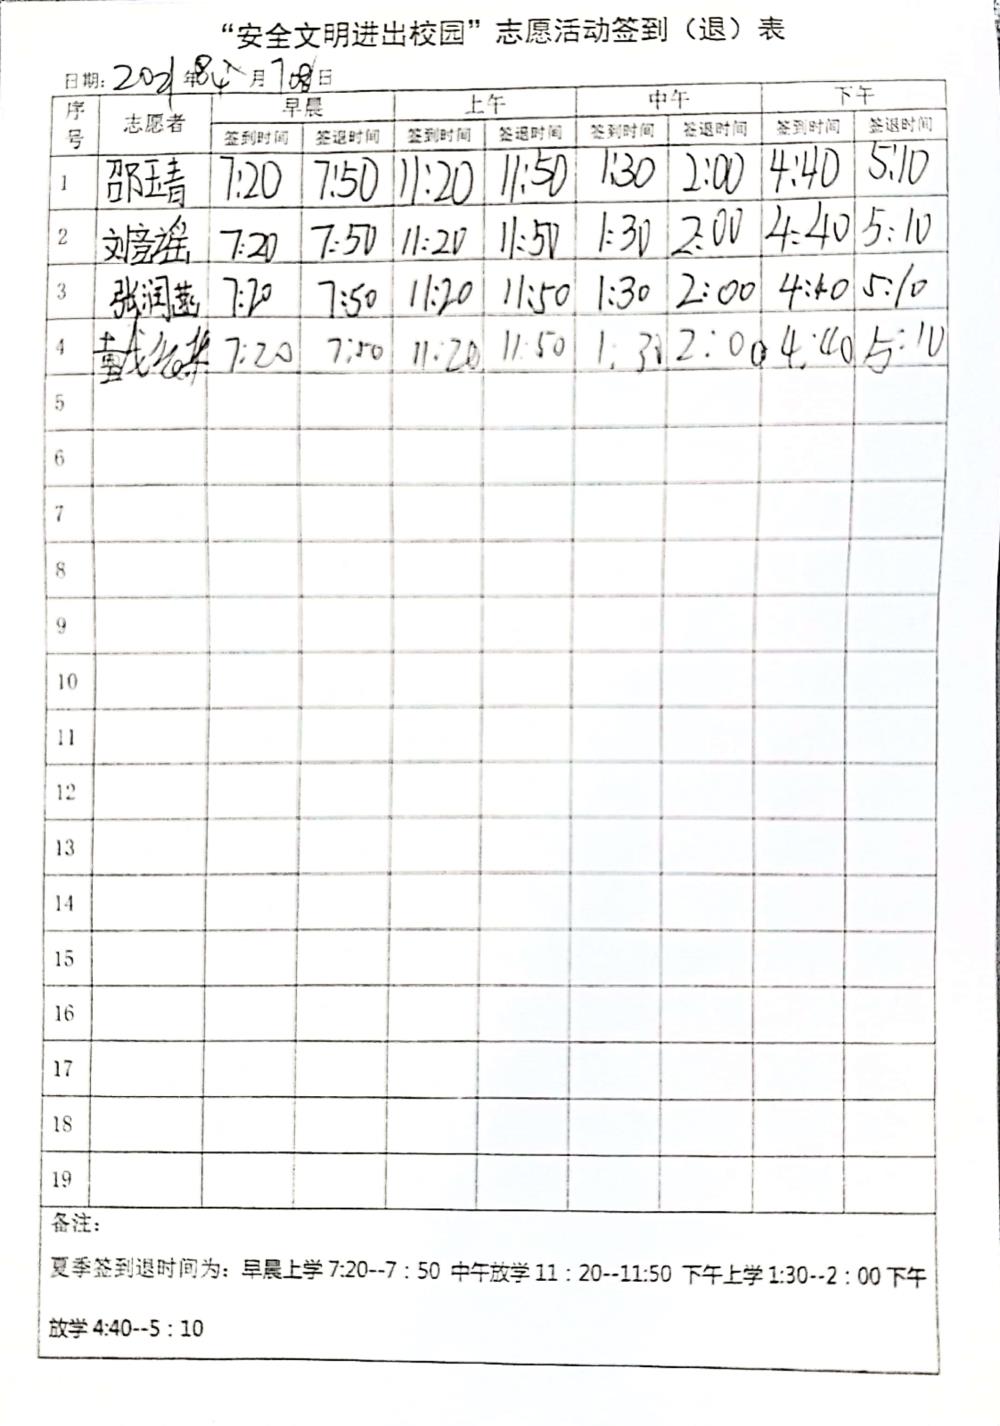 “安全文明进出校园”志愿活动签到（退）表
日期：2021年 月 日
序号 志愿者 早晨 上午 中午 下午
签到时间 签退时间 签到时间 签退时间 签到时间 签退时间 签到时间 签退时间
1 邵玉青 7:20 7:50 11:20 11:50 1:30 2:00 4:40 5:10
2 刘 瑶 7:20 7:50 11:20 11:50 1:30 2:00 4:40 5:10
3 张润燕 7:20 7:50 11:20 11:50 1:30 2:00 4:40 5:10
4 7:20 7:50 11:20 11:50 1:30 2:00 4:40 5:10
5
6
7
8
9
10
11
12
13
14
15
16
17
18
19
备注：
夏季签到退时间为：早晨上学7:20--7：50 中午放学11：20--11:50 下午上学1:30--2：00下午
放学4:40--5：10